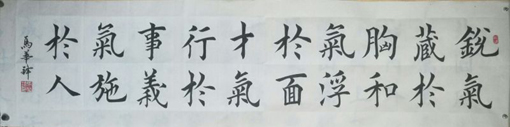 銳氣
藏於
胸和
氣浮
於面
才氣
行於
事義
氣施
於人
馬華